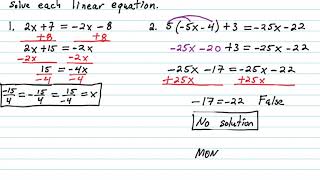 solve each linear equation.
1. 2x + 7 = -2x - 8
+8 +8
2x + 15 = -2x
-2x -2x
15 = -4x
-4 -4
-15/4 = -15/4 = 15/-4 = x
2. 5(-5x - 4) + 3 = -25x - 22
-25x - 20 + 3 = -25x - 22
-25x - 17 = -25x - 22
+25x +25x
-17 = -22 False
No solution
MON